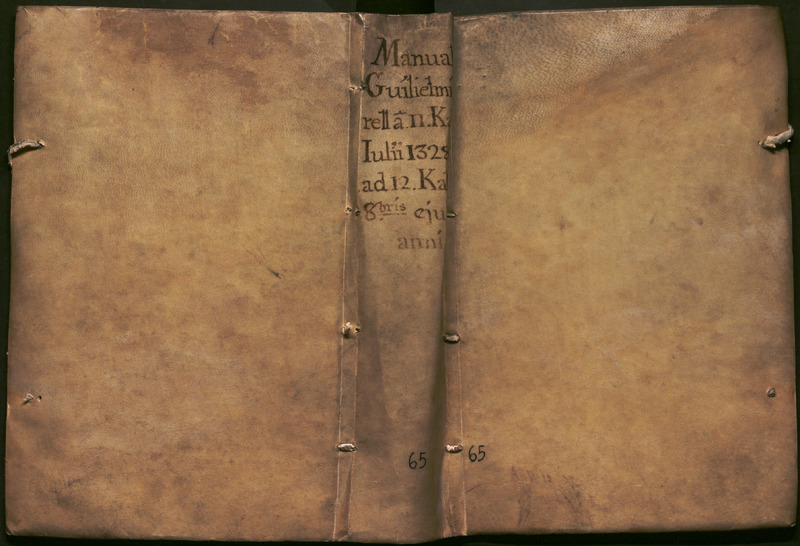 Manual
Guilielmi
rell ã. 11. Ka
Iulii 1328
ad 12. Ka
8.bris eju
anni
65 65